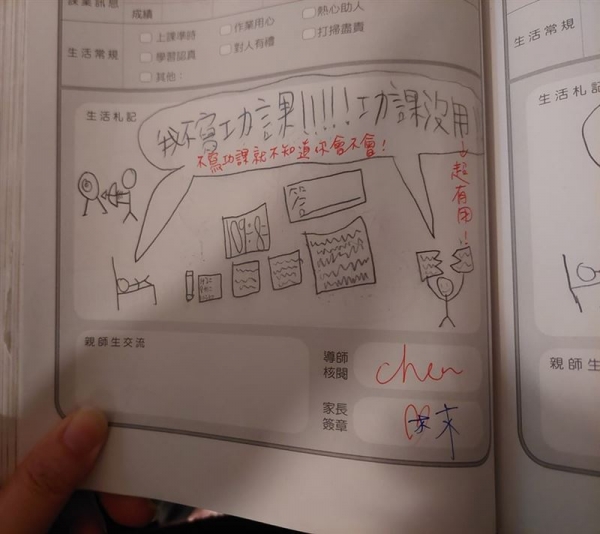 課業訊息
成績
生活常規
上課準時
作業用心
熱心助人
學習認真
對人有禮
打掃盡責
其他：
生活常規
生活札記
我不寫功課!!!!!功課沒用
不寫功課就不知道你會不會！
超有用!!
答
生活札記
親師生交流
導師
核閱
chen
家長
簽章
親師生